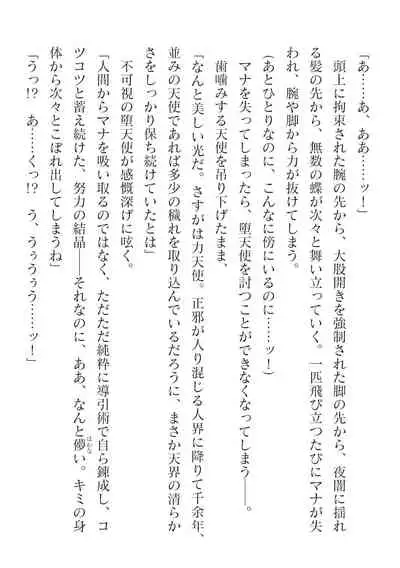 「あ……あ、ああ……ッ！」
　頭上に拘束された腕の先から、大股開きを強制された脚の先から、夜闇に揺れ
る髪の先から、無数の蝶が次々と舞い立っていく。一匹飛び立つたびにマナが失
われ、腕や脚から力が抜けてしまう。
（あとひとりなのに、こんなに傍にいるのに……ッ！）
　マナを失ってしまったら、堕天使を討つことができなくなってしまう――。
　歯噛みする天使を吊り下げたまま、
「なんと美しい光だ。さすがは力天使。正邪が入り混じる人界に降りて千余年、
並みの天使であれば多少の穢れを取り込んでいるだろうに、まさか天界の清らか
さをしっかり保ち続けていたとは」
　不可視の堕天使が感慨深げに呟く。
「人間からマナを吸い取るのではなく、ただただ純粋に導引術で自ら錬成し、コ
ツコツと蓄え続けた、努力の結晶――それなのに、ああ、なんと儚い。キミの身
はかな
体から次々とこぼれ出してしまうね」
「うっ！？　あ……くっ！？　う、うぅうぅう……ッ！」